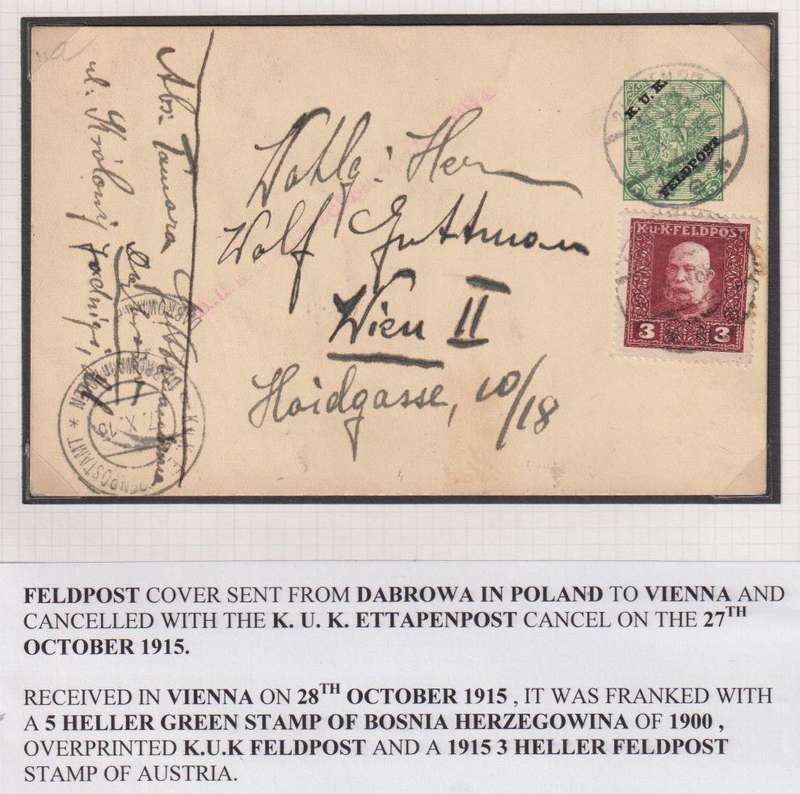 Abs: Tamara
ul. Królowej Jadwigi,
Wohlg: Herrn
Wolf Guttman
Wien II
Haidgasse, 10/18
K.U.K.
FELDPOST
5 5
K.u.K.FELDPOST
3 3
FELDPOST COVER SENT FROM DABROWA IN POLAND TO VIENNA AND
CANCELLED WITH THE K. U. K. ETTAPENPOST CANCEL ON THE 27TH
OCTOBER 1915.
RECEIVED IN VIENNA ON 28TH OCTOBER 1915 , IT WAS FRANKED WITH
A 5 HELLER GREEN STAMP OF BOSNIA HERZEGOWINA OF 1900 ,
OVERPRINTED K.U.K FELDPOST AND A 1915 3 HELLER FELDPOST
STAMP OF AUSTRIA.